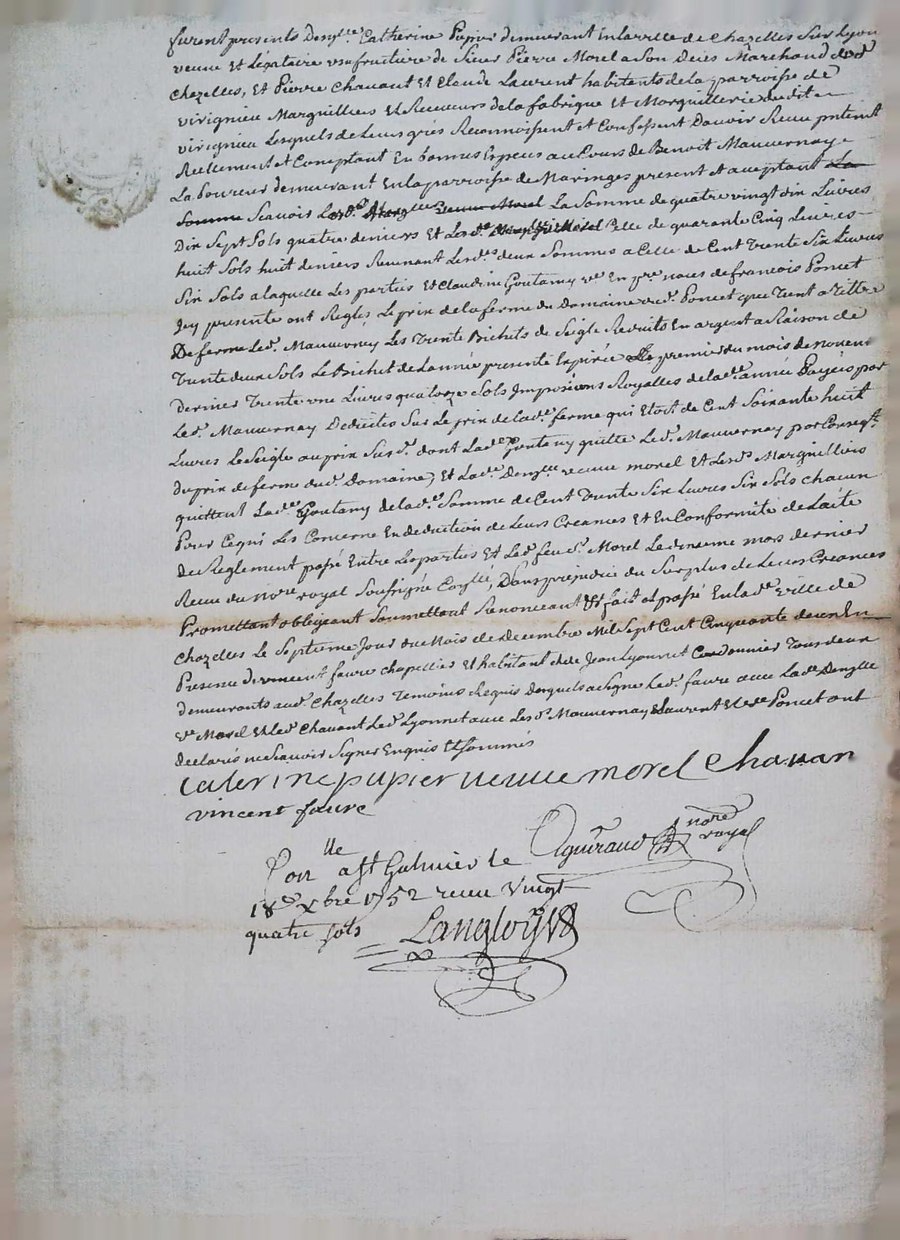 furent presents Dem.lle Catherine Pupier demeurant en la ville de Chazelles Sur Lyon
veuve et Légataire usufructiere de Sieur Pierre Morel a Son Deces Marchand dud.
Chazelles, et Pierre Chavant et Claude Laurent habitants de la parroisse de
virignieu Marguilliers et Receveurs de la fabrique et Marguillerie dudit
virignieu Lesquels de Leurs grés Reconnoissent et Confessent D'avoir Receu presentemt
Reellement et Comptant En bonnes Especes au Cours de Benoit Mauvernay
Laboureur demeurant En la parroisse de Maringes present et acceptant La
Somme Scavoir Lad.e veuve Morel La Somme de quatre vingt dix Livres
Dix Sept Sols quatre deniers et Lesd.s Celle de quarante Cinq Livres
huit Sols huit deniers Revenant Lesd.es deux Sommes a Celle de Cent Trente Six Livres
Six Sols a laquelle Les parties et Claudine Goutany v.e de francois Poncet
Icy presente ont Reglés Le prix de la ferme du Domaine dud. Poncet que Tient a Tittre
De ferme Led. Mauvernay Les Trente Bichets de Seigle Reduits En argent a Raison de
Trente deux Sols Le Bichet de L'année presente Expirée Le premier du mois de novem
dernier Trente une Livres quatorze Sols Impositions Royalles de lad.e année Payées par
Led. Mauvernay Deduites Sur Le prix de lad.e ferme qui Etoit de Cent Soixante huit
Livres Le Seigle au prix Sus d. dont Lad.e Goutany quitte Led. Mauvernay par Conseqt.
du prix de ferme dud. Domaine, et Lad.e Dem.lle veuve morel et Lesd.s Marguilliers
quittent Lad.e Goutany de lad.e Somme de Cent Trente Six Livres Six Sols chacun
Pour Ce qui Les Concerne En deduction de Leurs Creances et En Conformité de L'acte
de Reglement passé Entre Les parties et Led. feu S.r Morel Le mars dernier
Receu du No.re royal Soussigné, Sans prejudice du Surplus de Leurs Creances
Promettant obligeant Soumettant Renonceant &c fait et passé En lad.e ville de
Chazelles Le Septieme Jour du Mois de Decembre Mil Sept Cent Cinquante deux En
Presence de vincent faure chapellier et habitant de Jean Lyonnet Cordonnier Tous deux
demeurants aud. Chazelles Temoins Requis Desquels a Signé Led. faure avec Lad.e Dem.lle
v.e Morel et Led. Chavant Led. Lyonnet avec Les d. Mauvernay & Laurent et v.e Poncet ont
declarés ne Scavoir Signer Enquis et Sommés
Caterine pupier veuve morel Chavan
vincent faure
nore
royal
Con.lle a St Galmier le
18.e Xbre 1752 receu Vingt
quatre sols Langloys